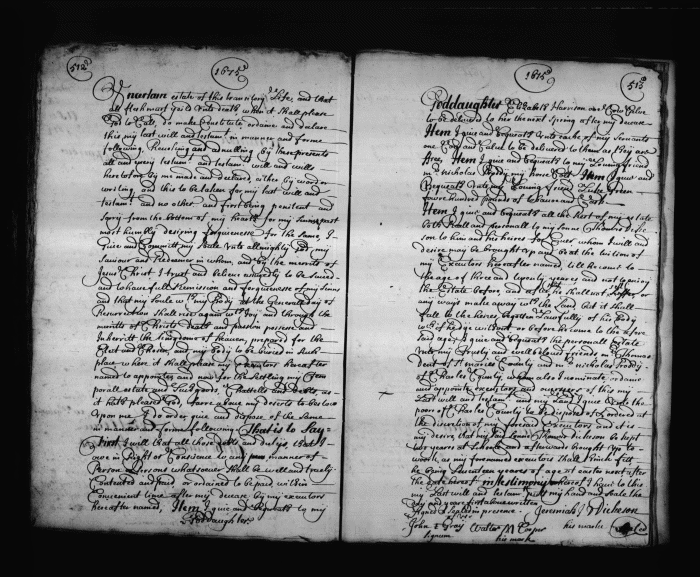 512
1675
uncertaine estate of this transitory Life and that
all flesh must yeild unto death when it shall please
God to Call, do make Constitute ordaine and declare
this my last will and testamt in manner and forme
following, Revoking and anulling by these presents
all and every testamt and testamts will and wills
heretofore by me made and declared either by word or
writing, and this to be taken for my last will and
testamt and no other and first being penitent and
Sorry from the bottom of my heart for my Sinnes past
most humbly desiring forgivenesse for the Same, I
Give and Committ my Soule unto allmighty God my
Saviour and Redeemer in whom, and by the meritts of
Jesus Christ I trust and beleive assuredly to be Saved
and to have full Remission and forgivenesse of my Sinns
and that my Soule wth my Body at the Generall day of
Resurrection shall rise againe wth Joy and through the
meritts of Christs death and passion possesse and
Inheritt the Kingdome of heaven, prepared for the
Elect and Chosen, and my body to be buried in Such
place where it shall please my Executors hereafter
named to appoint and now for the Setling my Tem
porall estate and Goods, Chattells and debts, as
it hath pleased God, farre above my deserts to bestow
upon me I do order give and dispose of the Same
in manner and forme following That is to Say
First I will that all those debts and dutys, that I
owe in Right or Conscience to any manner of
Person or Persons whatsoever shall be well and truely
Contented and paid or ordained to be paid within
Convenient time after my decease by my executors
hereafter named, Item I give and bequeath to my
Goddaughter
1675
513
Goddaughter Elizabeth Harrison one Cow Calve
to be delivered to her the next Spring after my decease
Item I give and bequeath unto each of my Servants
one Cow and Calve to be delivered to them as they are
free, Item I give and bequeath to my Loving friend
mr Nicholas my horse Item I give and
Bequeath unto my Loving friend Luke Green
foure hundred pounds of tobacco and Caske
Item I give and bequeath all the Rest of my estate
both Reall and personall to my Sonne Thomas Dicke
son to him and his heires for Ever whom I will and
desire may be brought up and be at the tuition of
my Executors hereafter named, till he come to
the age of three and twenty yeares and not to enjoy
the Estate before, and if he shall or
any ways make away wth the Land but it shall
fall to the heires, begotten Lawfully of his body
before he come to the afore
said age, I give and bequeath the personall estate
unto my trusty and well beloved friends mr Thomas
dent of St maries County and mr Nicholas
of Charles County whom I also nominate ordaine
and appoint executors and overseers of this my
Last will and testamt and my Land I give unto the
poore of Charles County to be disposed of & ordered at
the discretion of my foresaid Executors and it is
my desire that my Said Sonne Thomas Dickeson be kept
to and afterward brought up to
work, as my forenamed executors shall think fitt
he being yeares of age at easter next after
the date hereof in testimony whereof I have to this
my Last will and testamt sett my hand and Seale the
day and yeare first above written
Signed & Sealed in presence Jeremiah Dickeson
John Gray Walter M Cooper his marke
Signum his mark